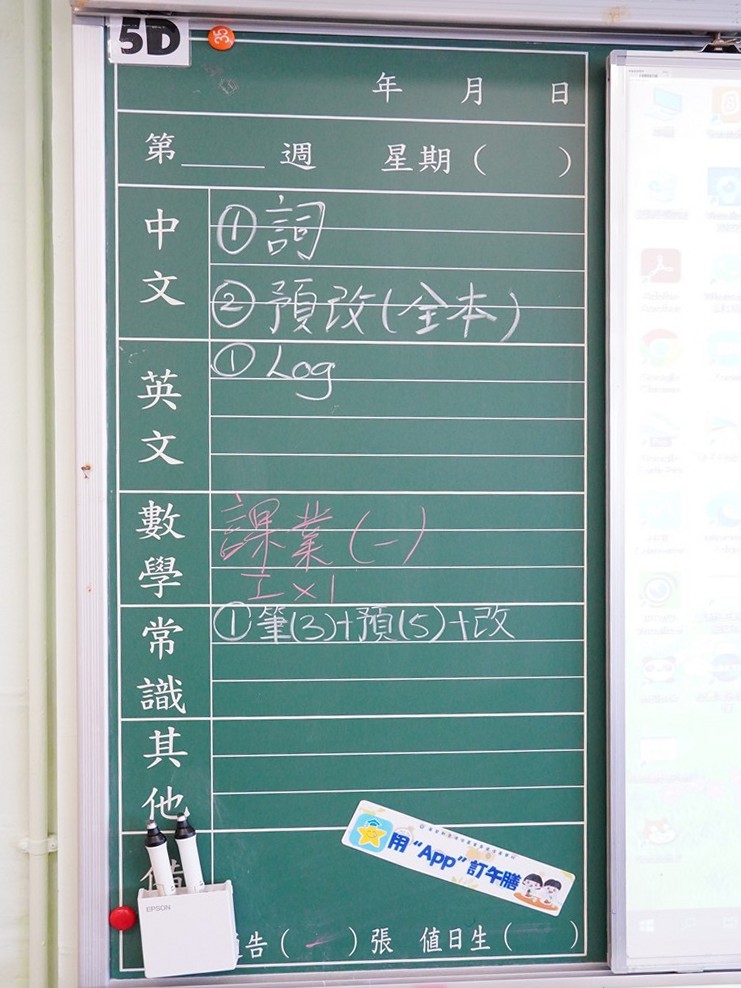 5D
年 月 日
第____週 星期( )
中文
①詞
②預改(全本)
英文
①Log
數學
課業(一)
工×1
常識
①筆(3)+預(5)+改
其他
用“App”訂午膳
EPSON
告(一)張 值日生( )